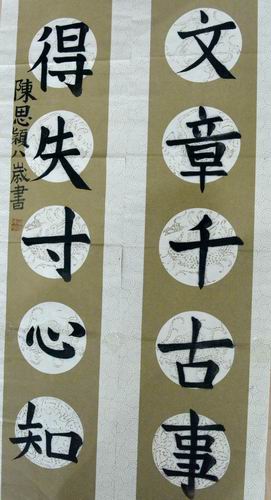 文章千古事
得失寸心知
陳思穎八歲書